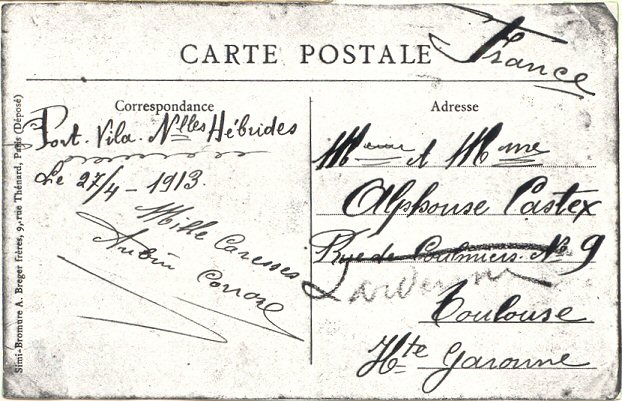 CARTE POSTALE
France
Correspondance
Port. Vila. Nlles Hébrides
Le 27/4 - 1913.
Mille Caresses
Aubin
Adresse
Mr et Mme
Alphonse Castex
Rue de Coulmiers. No 9
Toulouse
Hte Garonne
Simi-Bromure A. Breger frères, 9, rue Thénard, Paris (Déposé)